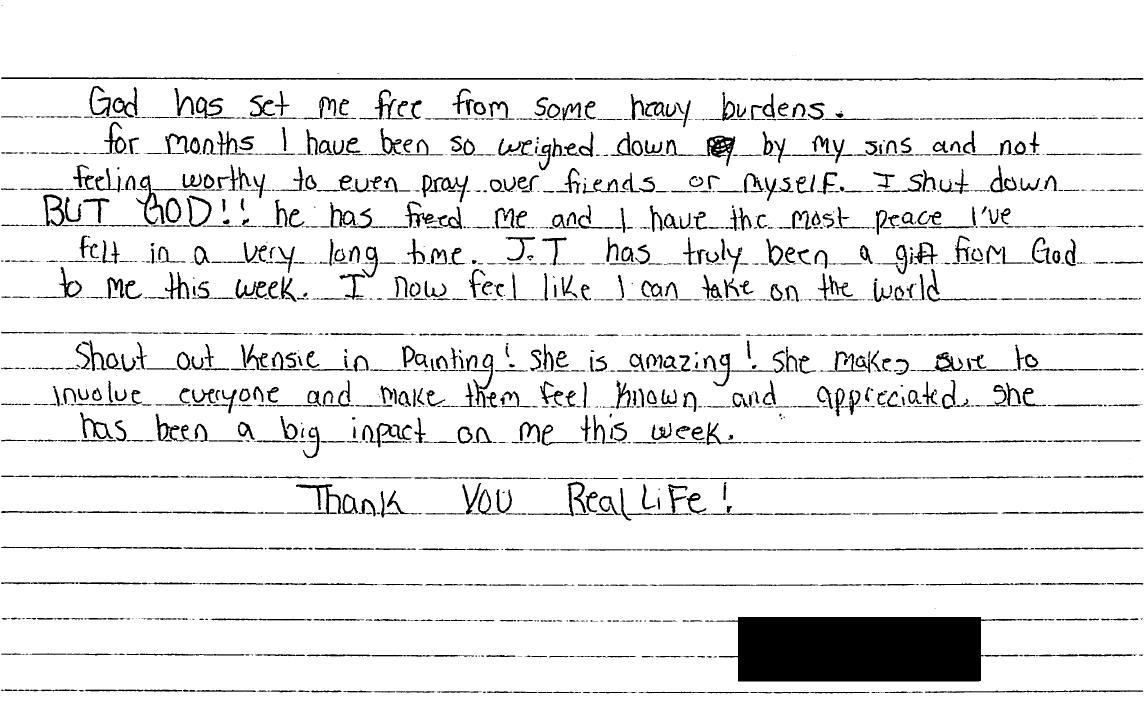 God has set me free from some heavy burdens.
for months I have been so weighed down by my sins and not
feeling worthy to even pray over friends or myself. I shut down
BUT GOD!! he has freed me and I have the most peace I've
felt in a very long time. J.T has truly been a gift from God
to me this week. I now feel like I can take on the world
Shout out Kensie in Painting! she is amazing! she makes sure to
involve everyone and make them feel known and appreciated. she
has been a big inpact on me this week.
Thank YOU Real LiFe!